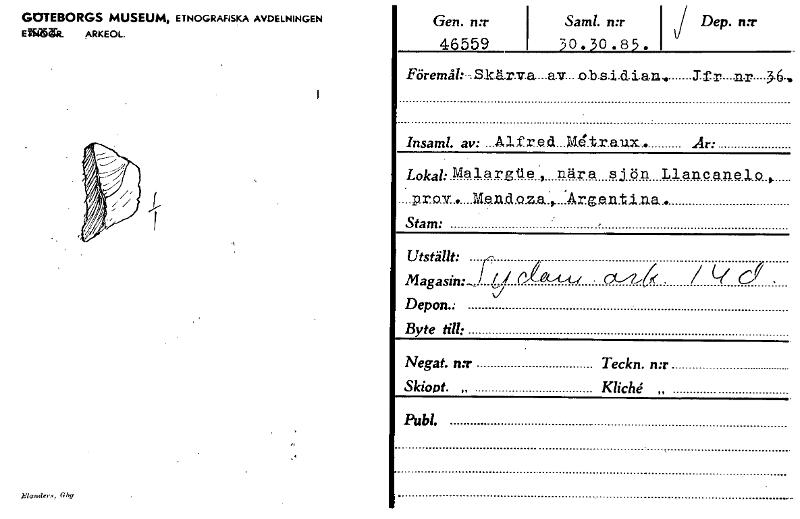 GÖTEBORGS MUSEUM, ETNOGRAFISKA AVDELNINGEN
ETNOGR. ARKEOL.
1/1
Elanders, Gbg
Gen. n:r Saml. n:r Dep. n:r
46559 30.30.85.
Föremål: Skärva av obsidian. Jfr nr 36.
Insaml. av: Alfred Métraux. År:
Lokal: Malargüe, nära sjön Llancanelo,
prov. Mendoza, Argentina.
Stam:
Utställt:
Magasin: Sydam ark. 14 d.
Depon.:
Byte till:
Negat. n:r Teckn. n:r
Skiopt. „ Kliché „
Publ.